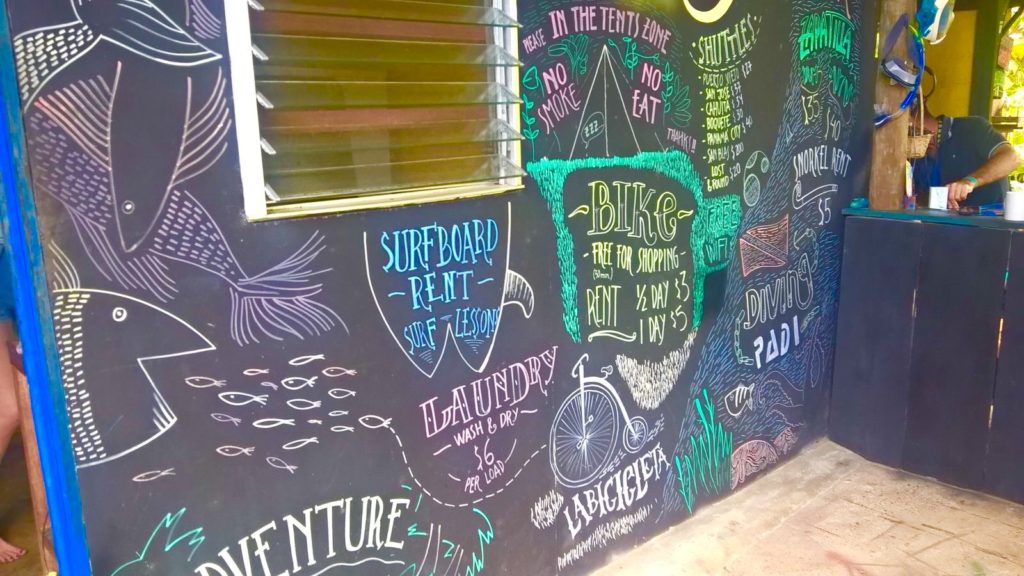 PLEASE IN THE TENTS ZONE
NO
SMOKE
NO
EAT
ZZZ
THANKS!!
SHUTTLES
PUERTO VIEJO
SAN JOSE
CAHUITA
BOQUETE
PANAMA CITY
SAN BLAS
LOST
& FOUND
ZAPATILLA
$35
SNORKEL RENT
$5
DIVING
PADI
~BIKE~
-FREE FOR SHOPPING-
RENT ½ DAY $3
1 DAY $5
LABICICLETA
SURFBOARD
-RENT-
SURF LESSONS
LAUNDRY
WASH & DRY
$6
PER LOAD
DVENTURE